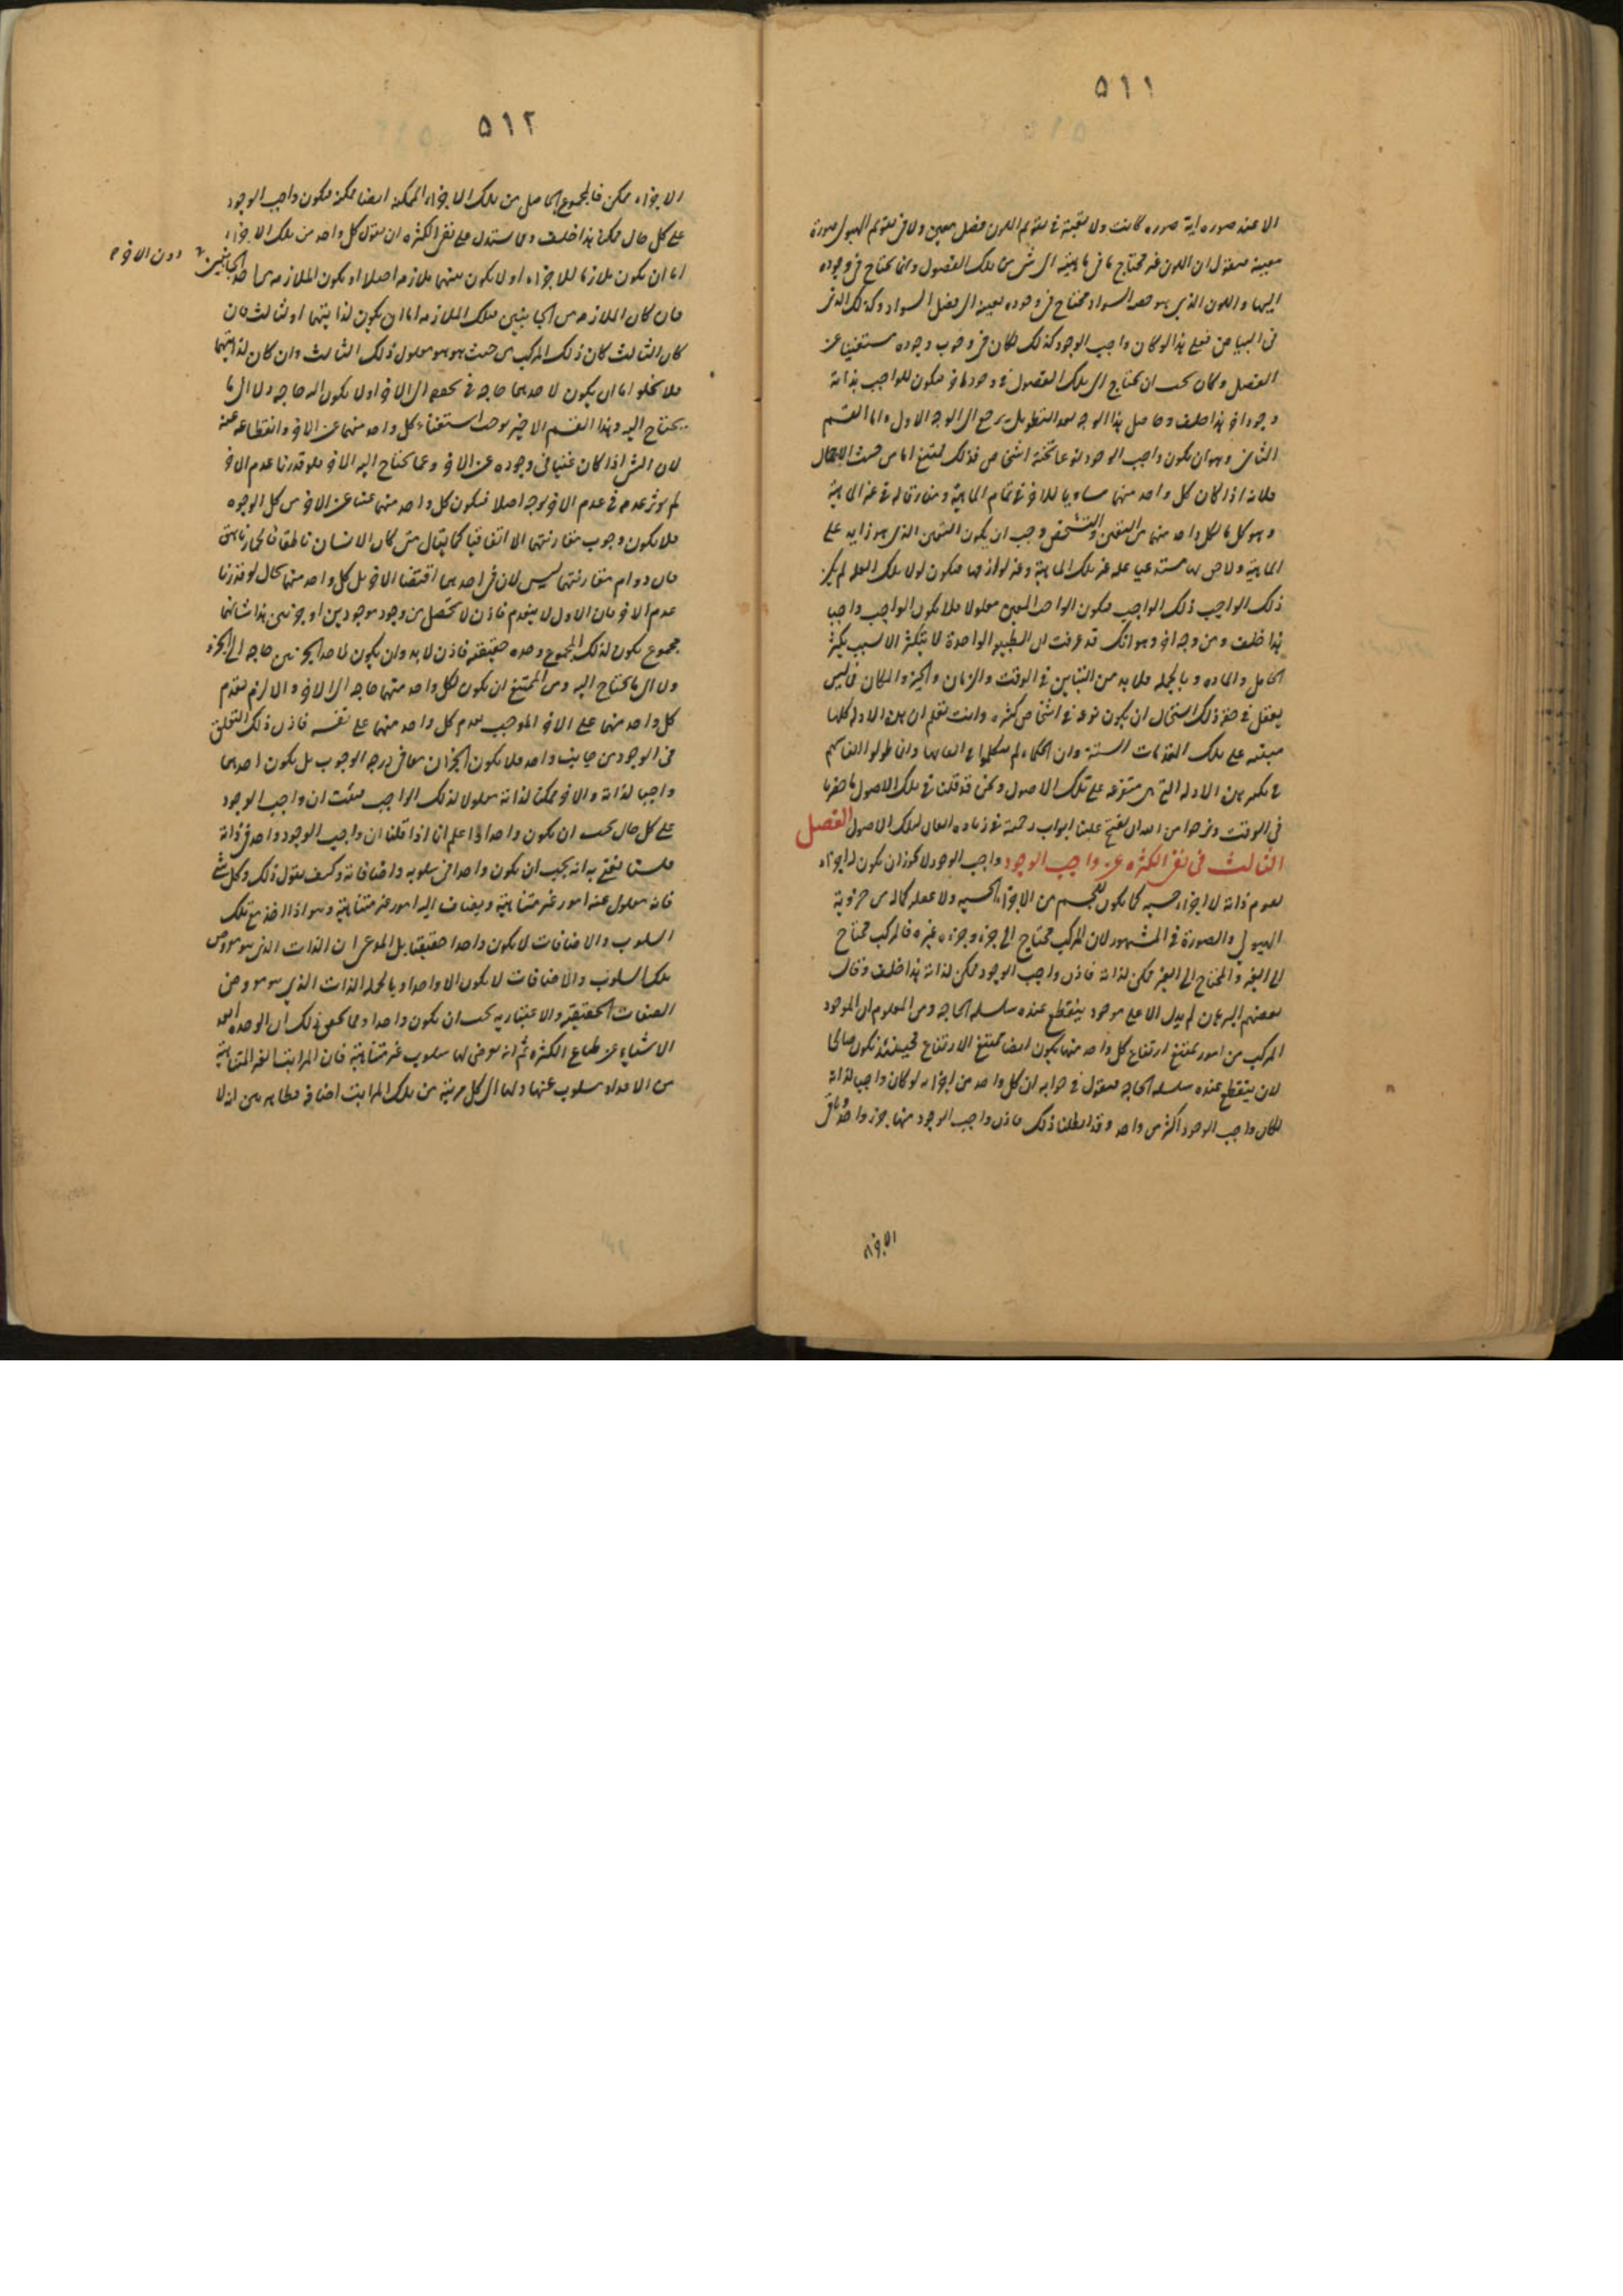 ٥١١
الا عند صوره اية صوره كانت ولا بعينه فى تقويم اللون فصل معين ولا فى تقويم الهيولى صورة
معينة فنقول ان اللون غير محتاج فى ماهيته الى شى من تلك الفصول وانما يحتاج فى وجوده
اليها واللون الذى هو حصه السواد محتاج فى وجوده بعينه الى فصل السواد وكذلك الذى
فى البياض فعلى هذا لو كان واجب الوجود كذلك لكان فى وجوب وجوده مستغنيا عن
الفصل وكان يجب ان يحتاج الى تلك الفصول فى وجودها فيكون للواجب بذاته
وجود اخر هذا خلف وحاصل هذا الوجه بعد التطويل يرجع الى الوجه الاول واما القسم
الثانى وهو ان يكون واجب الوجود نوعا تحته اشخاص فذلك ممتنع اما من حيث الاجمال
فلانه اذا كان كل واحد منهما مساويا للاخر فى تمام الماهية ومفارقا له فى غير الماهية
وهو كل ما لكل واحد منهما من التعين والتشخص وجب ان يكون التعين الذى هو زايد على
الماهية ولاحق لها مستدعيا علة غير تلك الماهية وغير لوازمها فيكون لولا تلك العلة لم يكن
ذلك الواجب ذلك الواجب فيكون الواحد المعين معلولا فلا يكون الواجب واجبا
هذا خلف ومن وجه اخر وهو انك قد عرفت ان الطبيعه الواحدة لا تتكثر الا بسبب تكثر
الحامل والماده وبالجمله فلا بد من التباين فى الوقت والزمان والحيز والمكان فما ليس
يعقل فى حقه ذلك استحال ان يكون نوعه فى اشخاص كثره وانت تعلم ان هذه الادلة كلها
مبتنيه على تلك المقدمات الستة وان الحكماء لم يتكلموا فى اتقانها وانما طولوا انفاسهم
فى تكثير هذه الادلة التى هى متفرعه على تلك الاصول ونحن قد قلنا فى تلك الاصول ما حضرنا
فى الوقت ونرجوا من الله ان يفتح علينا ابواب رحمته فى زياده اتقان لتلك الاصول الفصل
الثالث فى نفى الكثره عن واجب الوجود واجب الوجود لا يجوز ان يكون له اجزاء
تقوم ذاته لا اجزاء حسيه كما يكون للجسم من الاجزاء الحسيه ولا عقليه كما له من جزويه
الهيولى والصورة فى المشهور لان المركب محتاج الى جزءه وجزءه غيره فالمركب محتاج
الى الغير والمحتاج الى الغير ممكن لذاته فاذن واجب الوجود ممكن لذاته هذا خلف وقال
بعضهم البرهان لم يدل الا على موجود ينقطع عنده سلسلة الحاجه ومن المعلوم ان الموجود
المركب من امور يمتنع ارتفاع كل واحد منها يكون ايضا ممتنع الارتفاع فحينئذ يكون صالحا
لان ينقطع عنده سلسلة الحاجه فنقول فى جوابه ان كل واحد من اجزائه لو كان واجبا لذاته
لكان واجب الوجود اكثر من واحد وقد ابطلنا ذلك فاذن واجب الوجود منها جزء واحد وباقى
الاجزاء
٥١٢
الاجزاء ممكن فالمجموع الحاصل من تلك الاجزاء الممكنه ايضا ممكنه فيكون واجب الوجود
على كل حال ممكنا هذا خلف ومما يستدل على نفى الكثره ان نقول كل واحد من تلك الاجزاء
اما ان يكون ملازما للاجزاء او لا يكون بينهما ملازمه اصلا او يكون الملازمه من احد الجانبين
دون الاخر
فان كان الملازمه من الجانبين فتلك الملازمه اما ان يكون لذاتيهما او لثالث فان
كان الثالث كان ذلك المركب من حيث هو هو معلول ذلك الثالث وان كان لذاتيهما
فلا يخلو اما ان يكون لاحديهما حاجه فى تحققه الى الاخر او لا يكون اليه حاجه ولا الى ما
يحتاج اليه وهذا القسم الاخير يوجب استغناء كل واحد منهما عن الاخر وانقطاعه عنه
لان الشى اذا كان غنيا فى وجوده عن الاخر وعما يحتاج اليه الاخر فلو قدرنا عدم الاخر
لم يوثر عدمه فى عدم الاخر بوجه اصلا فيكون كل واحد منهما غنيا عن الاخر من كل الوجوه
فلا يكون وجوب مقارنتهما الا اتفاقيا كما يقال متى كان الانسان ناطقا فالحمار ناهق
فان دوام مقارنتهما ليس لان فى احديهما اقتضا الاخر بل كل واحد منهما بحال لو قدرنا
عدم الاخر فان الاول لا ينعدم فاذن لا يحصل من وجود موجودين او جزئين هذا شانهما
مجموع يكون لذلك المجموع وحده حقيقيه فاذن لا بد وان يكون لاحد الجزئين حاجه الى الجزء
ولا الى ما يحتاج اليه ومن الممتنع ان يكون لكل واحد منهما حاجه الى الاخر والا لزم تقدم
كل واحد منهما على الاخر الموجب تقدم كل واحد منهما على نفسه فاذن ذلك التعلق
فى الوجود من جانب واحد فلا يكون الجزءان معا فى درجه الوجوب بل يكون احديهما
واجبا لذاته والاخر ممكنا لذاته معلولا لذلك الواجب فثبت ان واجب الوجود
على كل حال يجب ان يكون واحدا واعلم انا اذا قلنا ان واجب الوجود واحد فى ذاته
فلسنا نعنى به انه يجب ان يكون واحدا فى سلوبه واضافاته وكيف نقول ذلك وكل شى
فانه مسلوب عنه امور غير متناهية ويضاف اليه امور غير متناهية وهو اذا اخذ مع تلك
السلوب والاضافات لا يكون واحدا حقيقيا بل المدعى ان الذات الذى هو معروض
تلك السلوب والاضافات لا يكون الا واحدا وبالجمله الذات الذى هو معروض
الصفات الحقيقيه والاعتباريه يجب ان يكون واحدا ومما يحقق ذلك ان الوحده ابعد
الاشياء عن طباع الكثره ثم انه يعرض لها سلوب غير متناهية فان المراتب الغير المتناهية
من الاعداد مسلوب عنها ولها الى كل مرتبة من تلك المراتب اضافه فظاهر من ان لا